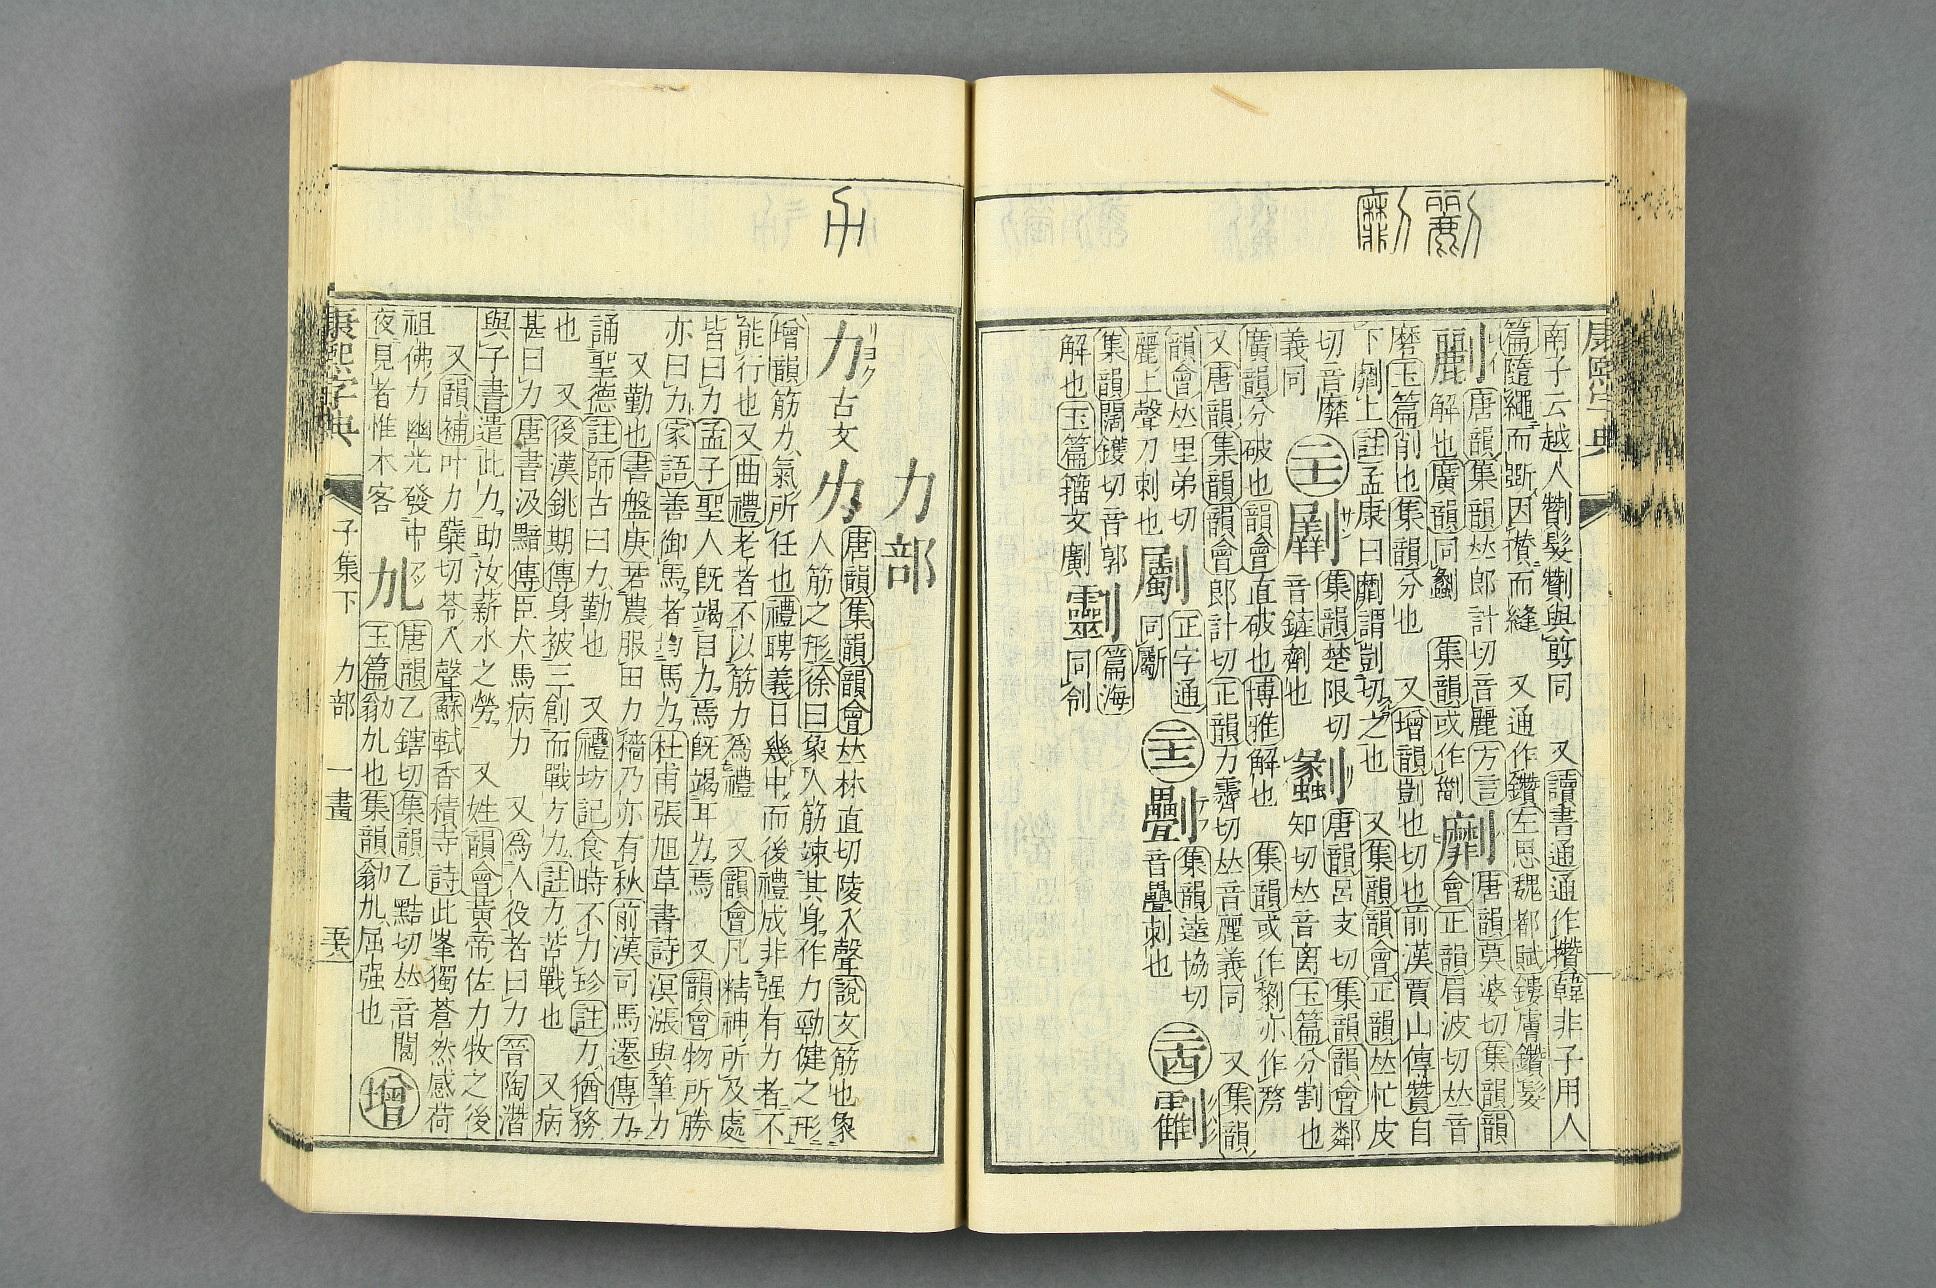 南子云越人劗髮劗與剪同 又讀書通通作攢韓非子用人
篇隨繩而斲因攢而縫 又通作鑽左思魏都賦鏤膚鑽髮
劙唐韻集韻𠀤郎計切音麗方言劙
解也廣韻同蠡 集韻或作𠛮
劘唐韻莫婆切集韻韻
會正韻眉波切𠀤音
磨玉篇削也集韻分也 又增韻剴也切也前漢賈山傳贊自
下劘上註孟康曰劘謂剴切之也 又集韻韻會正韻𠀤忙皮
切音糜
義同
集韻楚限切
音鏟劑也
唐韻呂支切集韻韻會鄰
知切𠀤音离玉篇分割也
廣韻分破也韻會直破也博雅解也 集韻或作劙亦作
又唐韻集韻韻會郎計切正韻力霽切𠀤音麗義同 又集韻
韻會𠀤里弟切
麗上聲刀刺也
劚正字通
同斸
集韻達協切
音疊刺也
集韻闊鑊切音郭
解也玉篇籀文劚
篇海
同刢
康熙字典
力部
力古文
唐韻集韻韻會𠀤林直切陵入聲說文筋也象
人筋之形徐曰象人筋竦其身作力勁健之形
增韻筋力氣所任也禮聘義日幾中而後禮成非强有力者不
能行也又曲禮老者不以筋力爲禮 又韻會凡精神所及處
皆曰力孟子聖人旣竭目力焉旣竭耳力焉 又韻會物所勝
亦曰力家語善御馬者均馬力杜甫張旭草書詩溟漲與筆力
又勤也書盤庚若農服田力穡乃亦有秋前漢司馬遷傳力
誦聖德註師古曰力勤也 又禮坊記食時不力珍註力猶務
也 又後漢銚期傳身被三創而戰方力註力苦戰也 又病
甚曰力唐書汲黯傳臣犬馬病力 又爲人役者曰力晉陶潛
與子書遣此力助汝薪水之勞 又姓韻會黃帝佐力牧之後
又韻補叶力蘖切苓入聲蘇軾香積寺詩此峯獨蒼然感荷
祖佛力幽光發中
夜見者惟木客
劜唐韻乙鎋切集韻乙黠切𠀤音閼
玉篇㔟劜也集韻㔟劜屈强也
增
康熙字典 子集下 力部 一畫